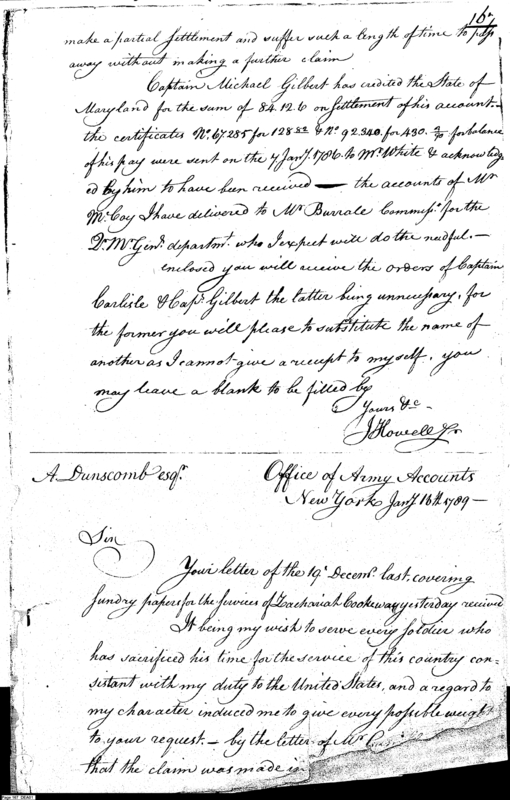 167
make a partial Settlement and suffer such a length of time to pass
away without making a further claim
Captain Michael Gilbert has credited the State of
Maryland for the sum of 84.12.6 on Settlement of his account.—
the certificates No. 67285 for 128 82 & No 92340. for 430. for balance
of his pay were sent on the 7 Jany. 1786 to Mr White & acknowledg
ed by him to have been received — the accounts of Mr
McCoy I have delivered to Mr Burrale Commissr. for the
Qr Mr Genl. departmt. who I expect will do the needful.—
enclosed you will receive the orders of Captain
Carlisle & Capt. Gilbert the latter being unnecessary, for
the former you will please to substitute the name of
another as I cannot give a receipt to myself, you
may leave a blank to be filled by
Yours &c
J Howell Jr
A. Dunscomb esqr.
Office of Army Accounts
New York Jany 16th 1789—
Sir
Your letter of the 19th Decemr. last, covering
sundry papers for the Services of Zachariah Cooke was yesterday received
It being my wish to serve every soldier who
has sacrificed his time for the service of this country con-
sistant with my duty to the United States, and a regard to
my character induced me to give every possible weight
to your request.— by the letter of Mr
that the claim was made in
Page 167